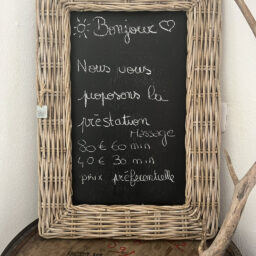 Bonjour
Nous vous
proposons la
préstation
Massage
80 € 60 min
40 € 30 min
prix préférentielle